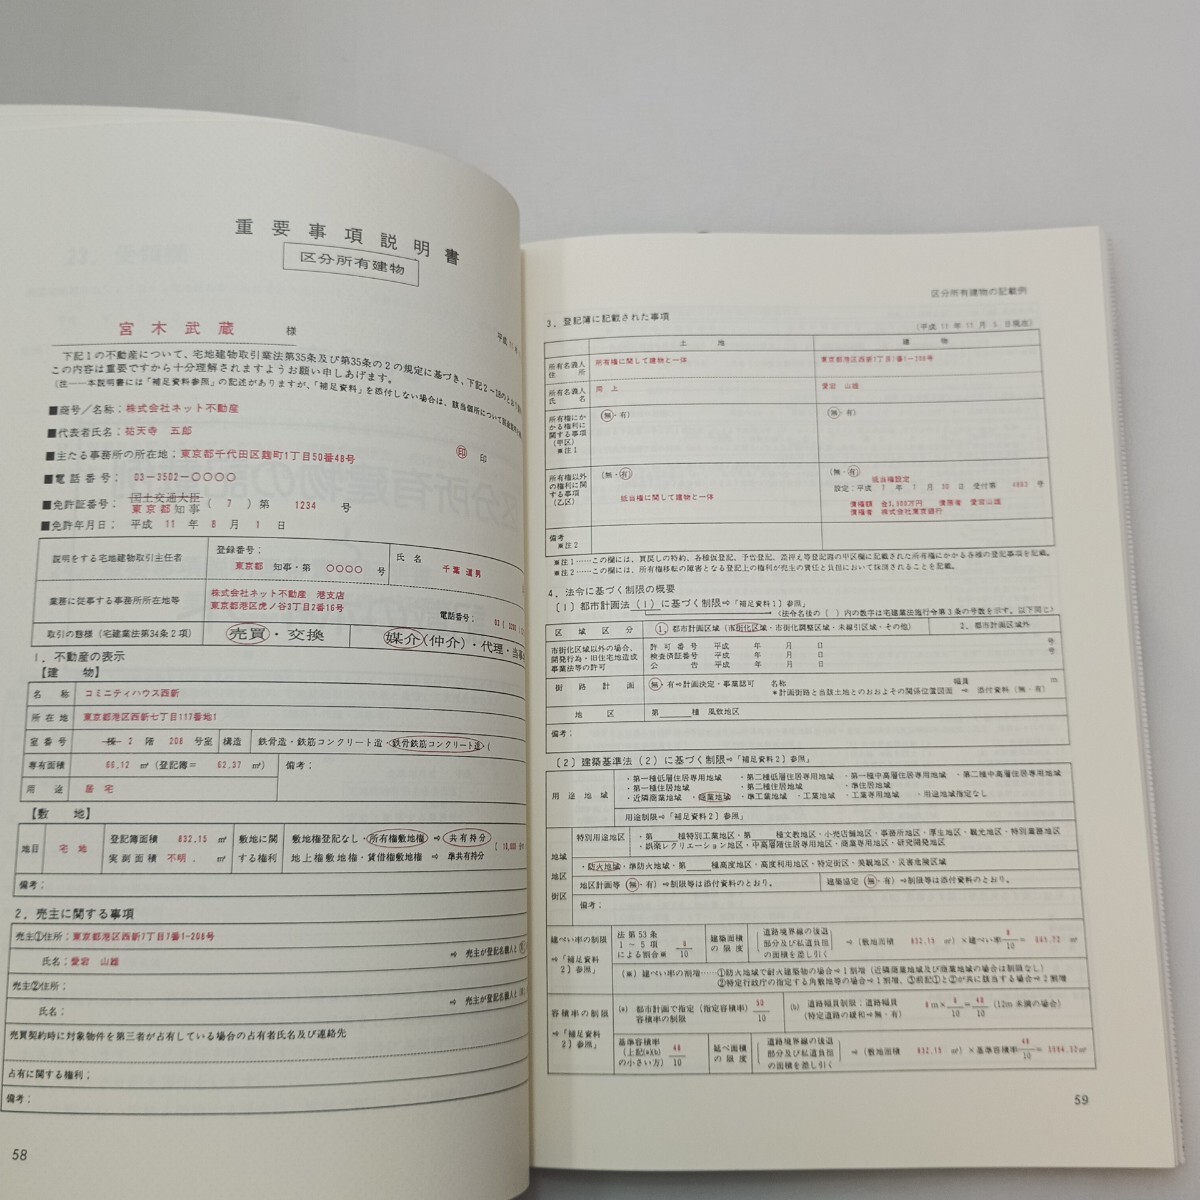 重要事項説明書
区分所有建物
宮木武蔵 様
下記1の不動産について、宅地建物取引業法第35条及び第35条の2の規定に基づき、下記2～
この内容は重要ですから十分理解されますようお願い申しあげます。
■商号／名称；株式会社ネット不動産
■代表者氏名；祐天寺 五郎
■主たる事務所の所在地；東京都千代田区麹町1丁目50番48号 印 印
■電話番号； 03-3502-○○○○
■免許証番号； 国土交通大臣 東京都知事 ( 7 ) 第 1234 号
■免許年月日； 平成 11 年 8 月 1 日
説明をする宅地建物取引主任者 登録番号； 東京都 知事・第 ○○○○ 号 氏名 千葉 道男
業務に従事する事務所所在地等 株式会社ネット不動産 港支店
東京都港区虎ノ谷3丁目2番16号 電話番号；
取引の態様（宅建業法第34条2項） 売買・交換 媒介(仲介)・代理・
1. 不動産の表示
【建 物】
名 称 コミニティハウス西新
所在地 東京都港区西新七丁目117番地1
室番号 棟 2 階 208 号室 構造 鉄骨造・鉄筋コンクリート造・鉄骨鉄筋コンクリート造・(
専有面積 66.12 ㎡ (登記簿＝ 62.37 ㎡) 備考；
用 途 居宅
【敷 地】
地目 宅地 登記簿面積 832.15 ㎡ 敷地に関 敷地権登記なし・所有権敷地権 ⇨ 共有持分
実測面積 不明. ㎡ する権利 地上権敷地権・賃借権敷地権 ⇨ 準共有持分
備考；
2. 売主に関する事項
売主①住所；東京都港区西新7丁目7番1-208号
氏名；愛宕 山雄 ⇨ 売主が登記名義人と
売主②住所；
氏名； ⇨ 売主が登記名義人と
売買契約時に対象物件を第三者が占有している場合の占有者氏名及び連絡先
占有に関する権利；
備考；
58
区分所有建物の記載例
3. 登記簿に記載された事項
(平成 11 年 11 月 5 日現在)
土 地 建 物
所有名義人住所 所有権に関して建物と一体 東京都港区西新7丁目7番1-208号
所有名義人氏名 同上 愛宕 山雄
所有権にかかる権利に関する事項(甲区)※注1 (無・有) (無・有)
所有権以外の権利に関する事項(乙区) (無・有) (無・有)
抵当権に関して建物と一体 抵当権設定
設定；平成 7 年 7 月 30 日 受付第 4883 号
債権額 金3,500万円 債務者 愛宕山雄
債権者 株式会社東京銀行
備考 ※注2
※注1……この欄には、買戻しの特約、各種仮登記、予告登記、差押え等登記簿の甲区欄に記載された所有権にかかる各種の登記事項を記載。
※注2……この欄には、所有権移転の障害となる登記上の権利が売主の責任と負担において抹消されることを記載。
4. 法令に基づく制限の概要
〔1〕都市計画法（1）に基づく制限⇨「補足資料1」参照
(法令名後の（ ）内の数字は宅建業法施行令第3条の号数を示す。以下同じ)
区域区分 1. 都市計画区域（市街化区域・市街化調整区域・未線引区域・その他） 2. 都市計画区域外
市街化区域以外の場合、開発行為・旧住宅地造成事業法等の許可 許可番号 平成 年 月 日 号
検査済証番号 平成 年 月 日 号
公告 平成 年 月 日
街路計画 無・有⇨計画決定・事業認可 名称 幅員 m
＊計画街路と当該土地とのおおよその関係位置図面 ⇨ 添付資料（無・有）
地 区 第 種 風致地区
備考；
〔2〕建築基準法（2）に基づく制限⇨「補足資料2」参照
用途地域 ・第一種低層住居専用地域 ・第二種低層住居専用地域 ・第一種中高層住居専用地域 ・第二種中高層住居専用地域
・第一種住居地域 ・第二種住居地域 ・準住居地域
・近隣商業地域 ・商業地域 ・準工業地域 ・工業地域 ・工業専用地域 ・用途地域指定なし
用途制限⇨「補足資料2」参照
地域 地区 街区 特別用途地区 ・第 種特別工業地区・第 種文教地区・小売店舗地区・事務所地区・厚生地区・観光地区・特別業務地区
・娯楽レクリエーション地区・中高層階住居専用地区・商業専用地区・研究開発地区
・防火地域・準防火地域・第 種高度地区・高度利用地区・特定街区・美観地区・災害危険区域
地区計画等（無・有）⇨制限等は添付資料のとおり。 建築協定（無・有）⇨制限等は添付資料のとおり。
備考；
建ぺい率の制限 ⇨「補足資料2」参照 法第53条1～5項による割合※ 8/10 建築面積の限度 道路境界線の後退部分及び私道負担の面積を差し引く ⇨（敷地面積 832.15 ㎡）×建ぺい率 8/10 ＝ 665.72 ㎡
（※）建ぺい率の割増……①防火地域で耐火建築物の場合⇨1割増（近隣商業地域及び商業地域の場合は制限なし）
②特定行政庁の指定する角敷地等の場合⇨1割増、③前記①と②が共に該当する場合⇨2割増
容積率の制限 ⇨「補足資料2」参照 (a) 都市計画で指定（指定容積率）容積率の制限 50/10 (b) 道路幅員制限；道路幅員（特定道路の緩和⇨無・有） 8m× 6/10 ＝ 48/10 (12m 未満の場合)
基準容積率（上記(a)(b)の小さい方） 48/10 延べ面積の限度 道路境界線の後退部分及び私道負担の面積を差し引く ⇨（敷地面積 832.15 ㎡）×基準容積率 48/10 ＝ 3994.32㎡
59